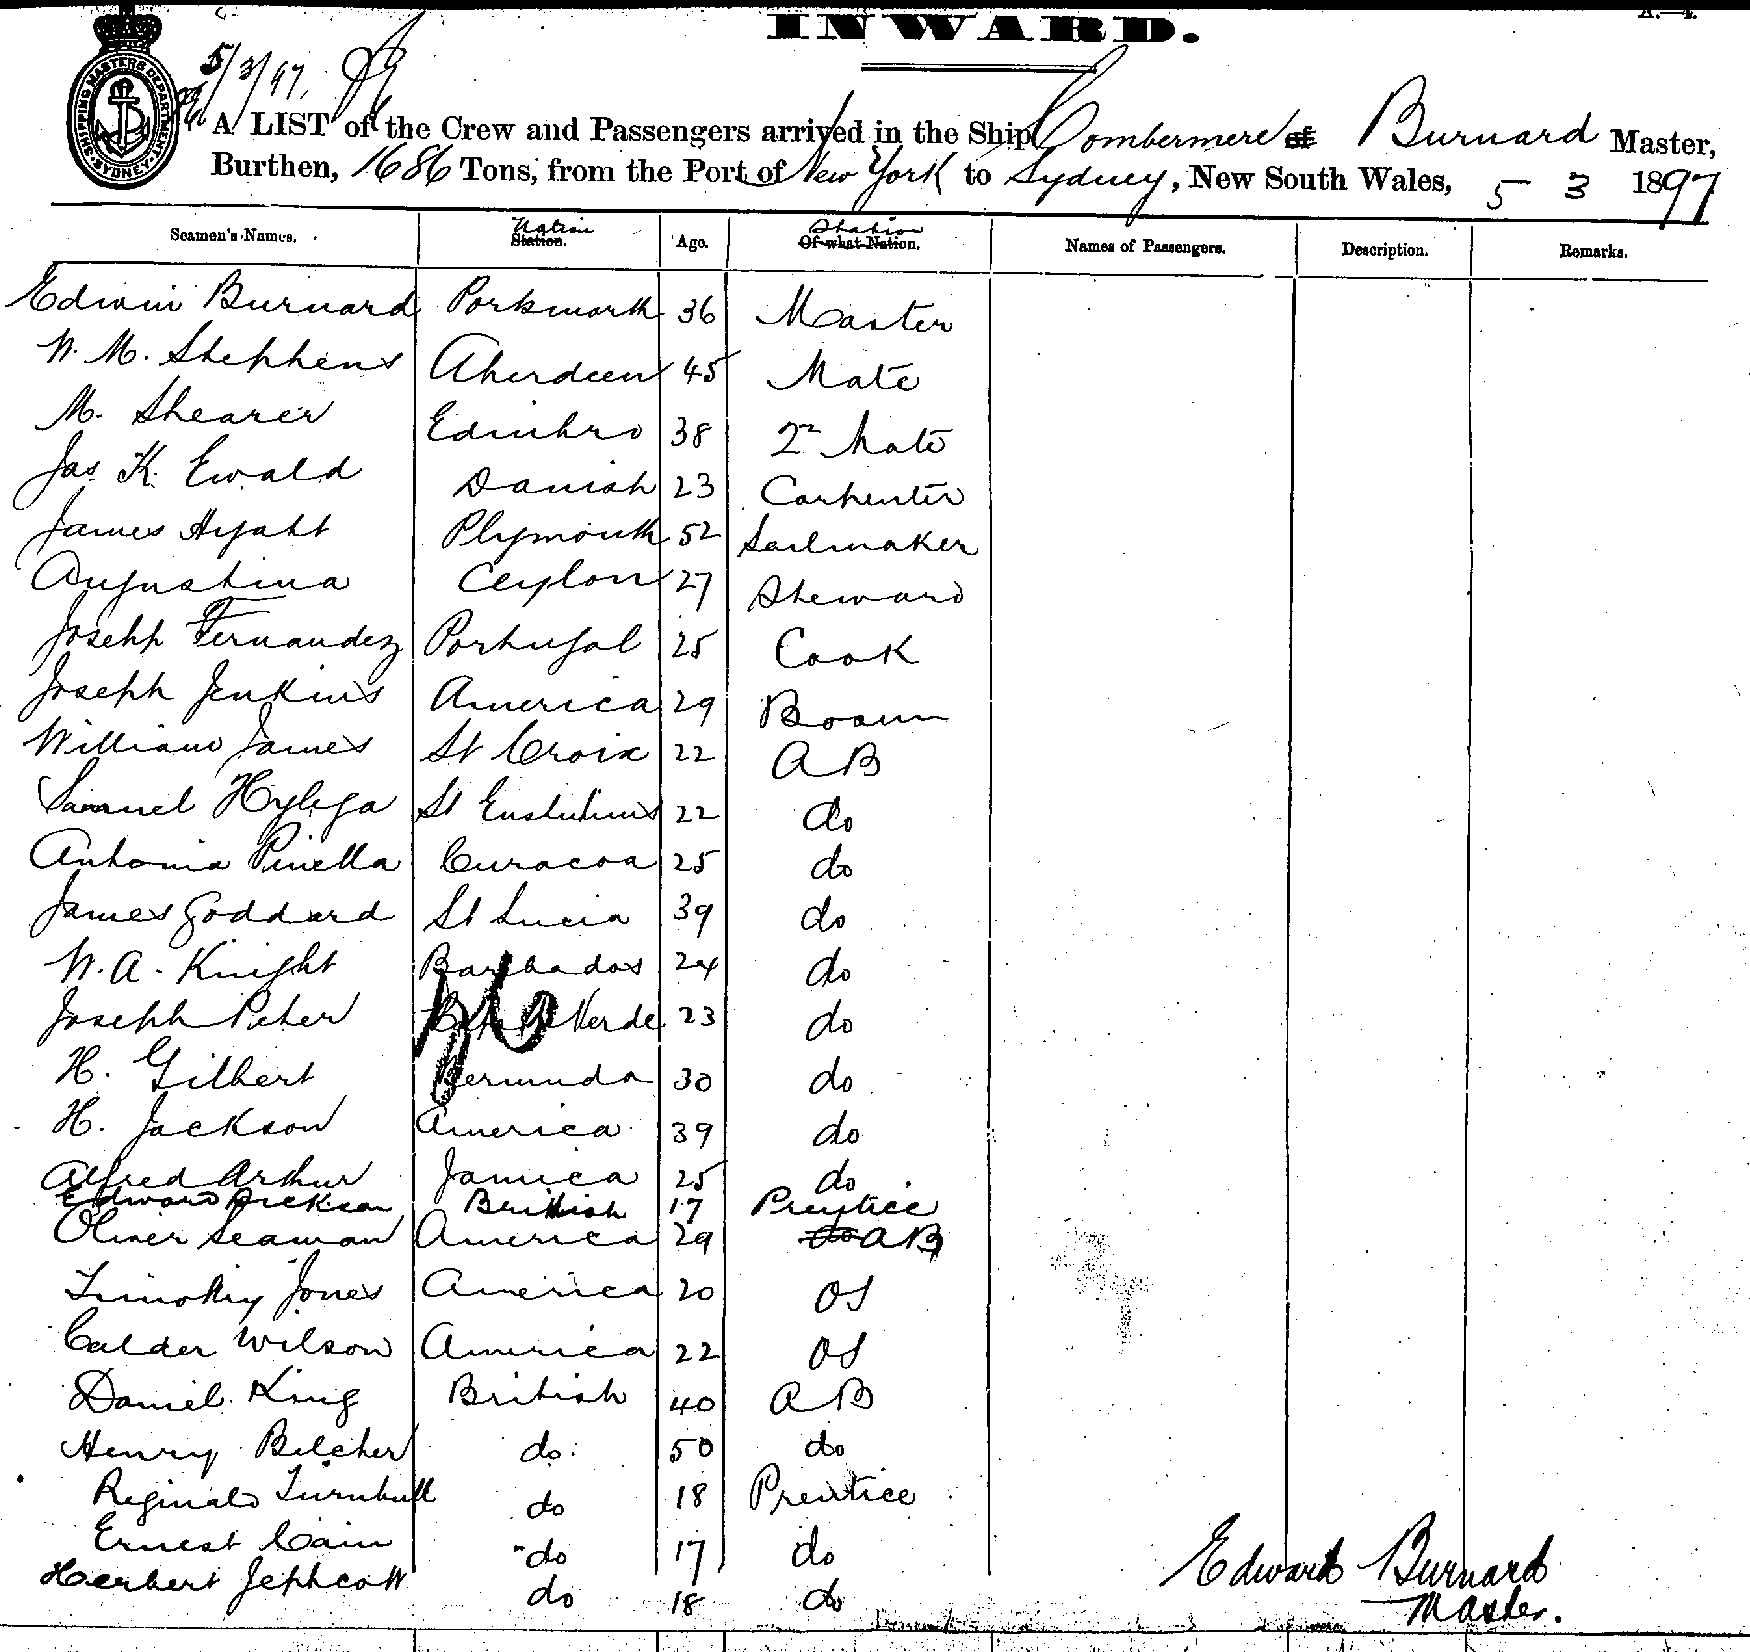 INWARD.
A.—4.
SHIPPING MASTERS DEPARTMENT SYDNEY
5/3/97.
A LIST of the Crew and Passengers arrived in the Ship Combermere of Burnard Master,
Burthen, 1686 Tons, from the Port of New York to Sydney, New South Wales, 5 3 1897
Seamen's Names. Nation Station. Age. Station Of what Nation. Names of Passengers. Description. Remarks.
Edwin Burnard Portsmouth 36 Master
W. M. Stephens Aberdeen 45 Mate
M. Shearer Edinbro 38 2nd Mate
Jas. K. Ewald Danish 23 Carpenter
James Hyatt Plymouth 52 Sailmaker
Augustina Ceylon 27 Steward
Joseph Fernandez Portugal 25 Cook
Joseph Jenkins America 29 Bosun
William James St Croix 22 A B
Samuel Hyliga St 22 do
Antonia Pinella Curacoa 25 do
James Goddard St Lucia 39 do
W. A. Knight Barbados 24 do
Joseph Peter Verde 23 do
H. Gilbert Bermuda 30 do
H. Jackson America 39 do
Alfred Arthur Jamica 25 do
Edward Dickson British 17 Prentice
Oliver Seaman America 29 do A B
Timothy Jones America 20 OS
Calder Wilson America 22 OS
Daniel King British 40 A B
Henry Belcher do 50 do
Reginald Turnbull do 18 Prentice
Ernest Cain do 17 do
Herbert Jephcott do 18 do
Edward Burnard
Master.